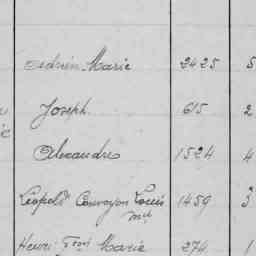 Adrien Marie 2425 5
Joseph 615 2
Alexandre 1524 4
Léopold Convoyon Louis 1459 3
Mel
Henri Fçois Marie 274 1